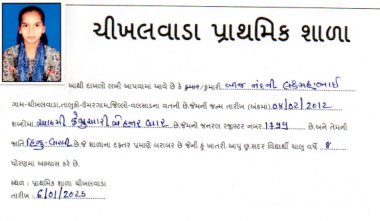 ચીખલવાડા પ્રાથમિક શાળા
આથી દાખલો લખી આપવામાં આવે છે કે કુમાર/કુમારી નંદની
ગામ-ચીખલવાડા,તાલુકો-ઉમરગામ,જિલ્લો-વલસાડના વતની છે.જેમની જન્મ તારીખ (અંકમાં) 04/02/2012
શબ્દોમાં ફેબ્રુઆરી બે હજાર બાર છે.જેમનો જનરલ રજીસ્ટર નંબર 1799 છે.અને તેમની
જાતિ હિન્દુ- છે.જે શાળાના દફતર પ્રમાણે બરાબર છે જેની હું ખાતરી આપુ છુ.સદર વિદ્યાર્થી ચાલુ વર્ષે 8
ધોરણમાં અભ્યાસ કરે છે.
સ્થળ : પ્રાથમિક શાળા ચીખલવાડા
તારીખ : 6/01/2025